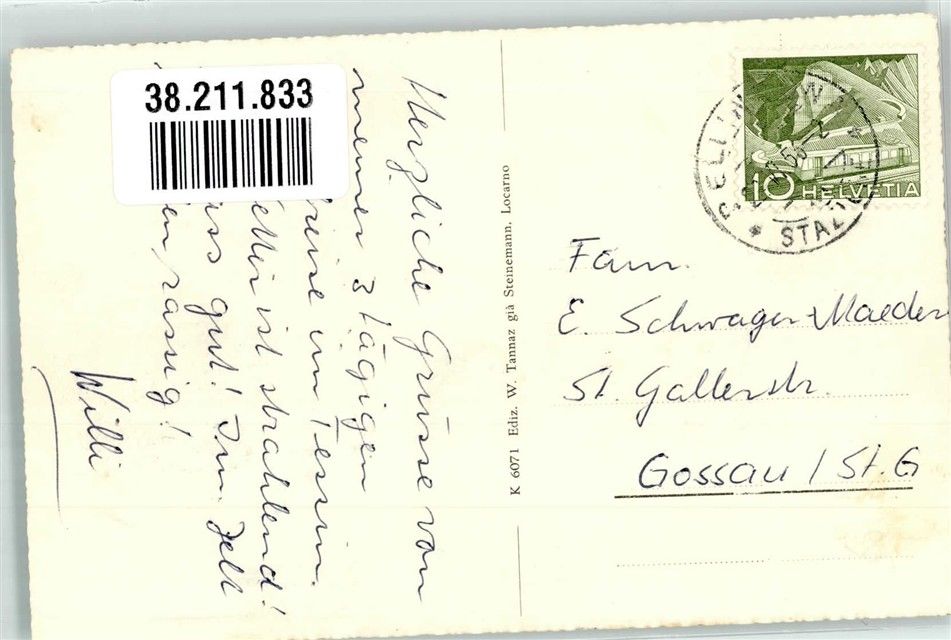 38.211.833
Herzliche Grüsse von
meiner 3 tägigen
reise im Tessin.
ist strahlend!
gut! Im Zelt
rassig!
Willi
K 6071 Ediz. W. Tannaz già Steinemann, Locarno
10 HELVETIA
Fam.
E. Schwager-Maeder
St. Gallerstr.
Gossau / St. G